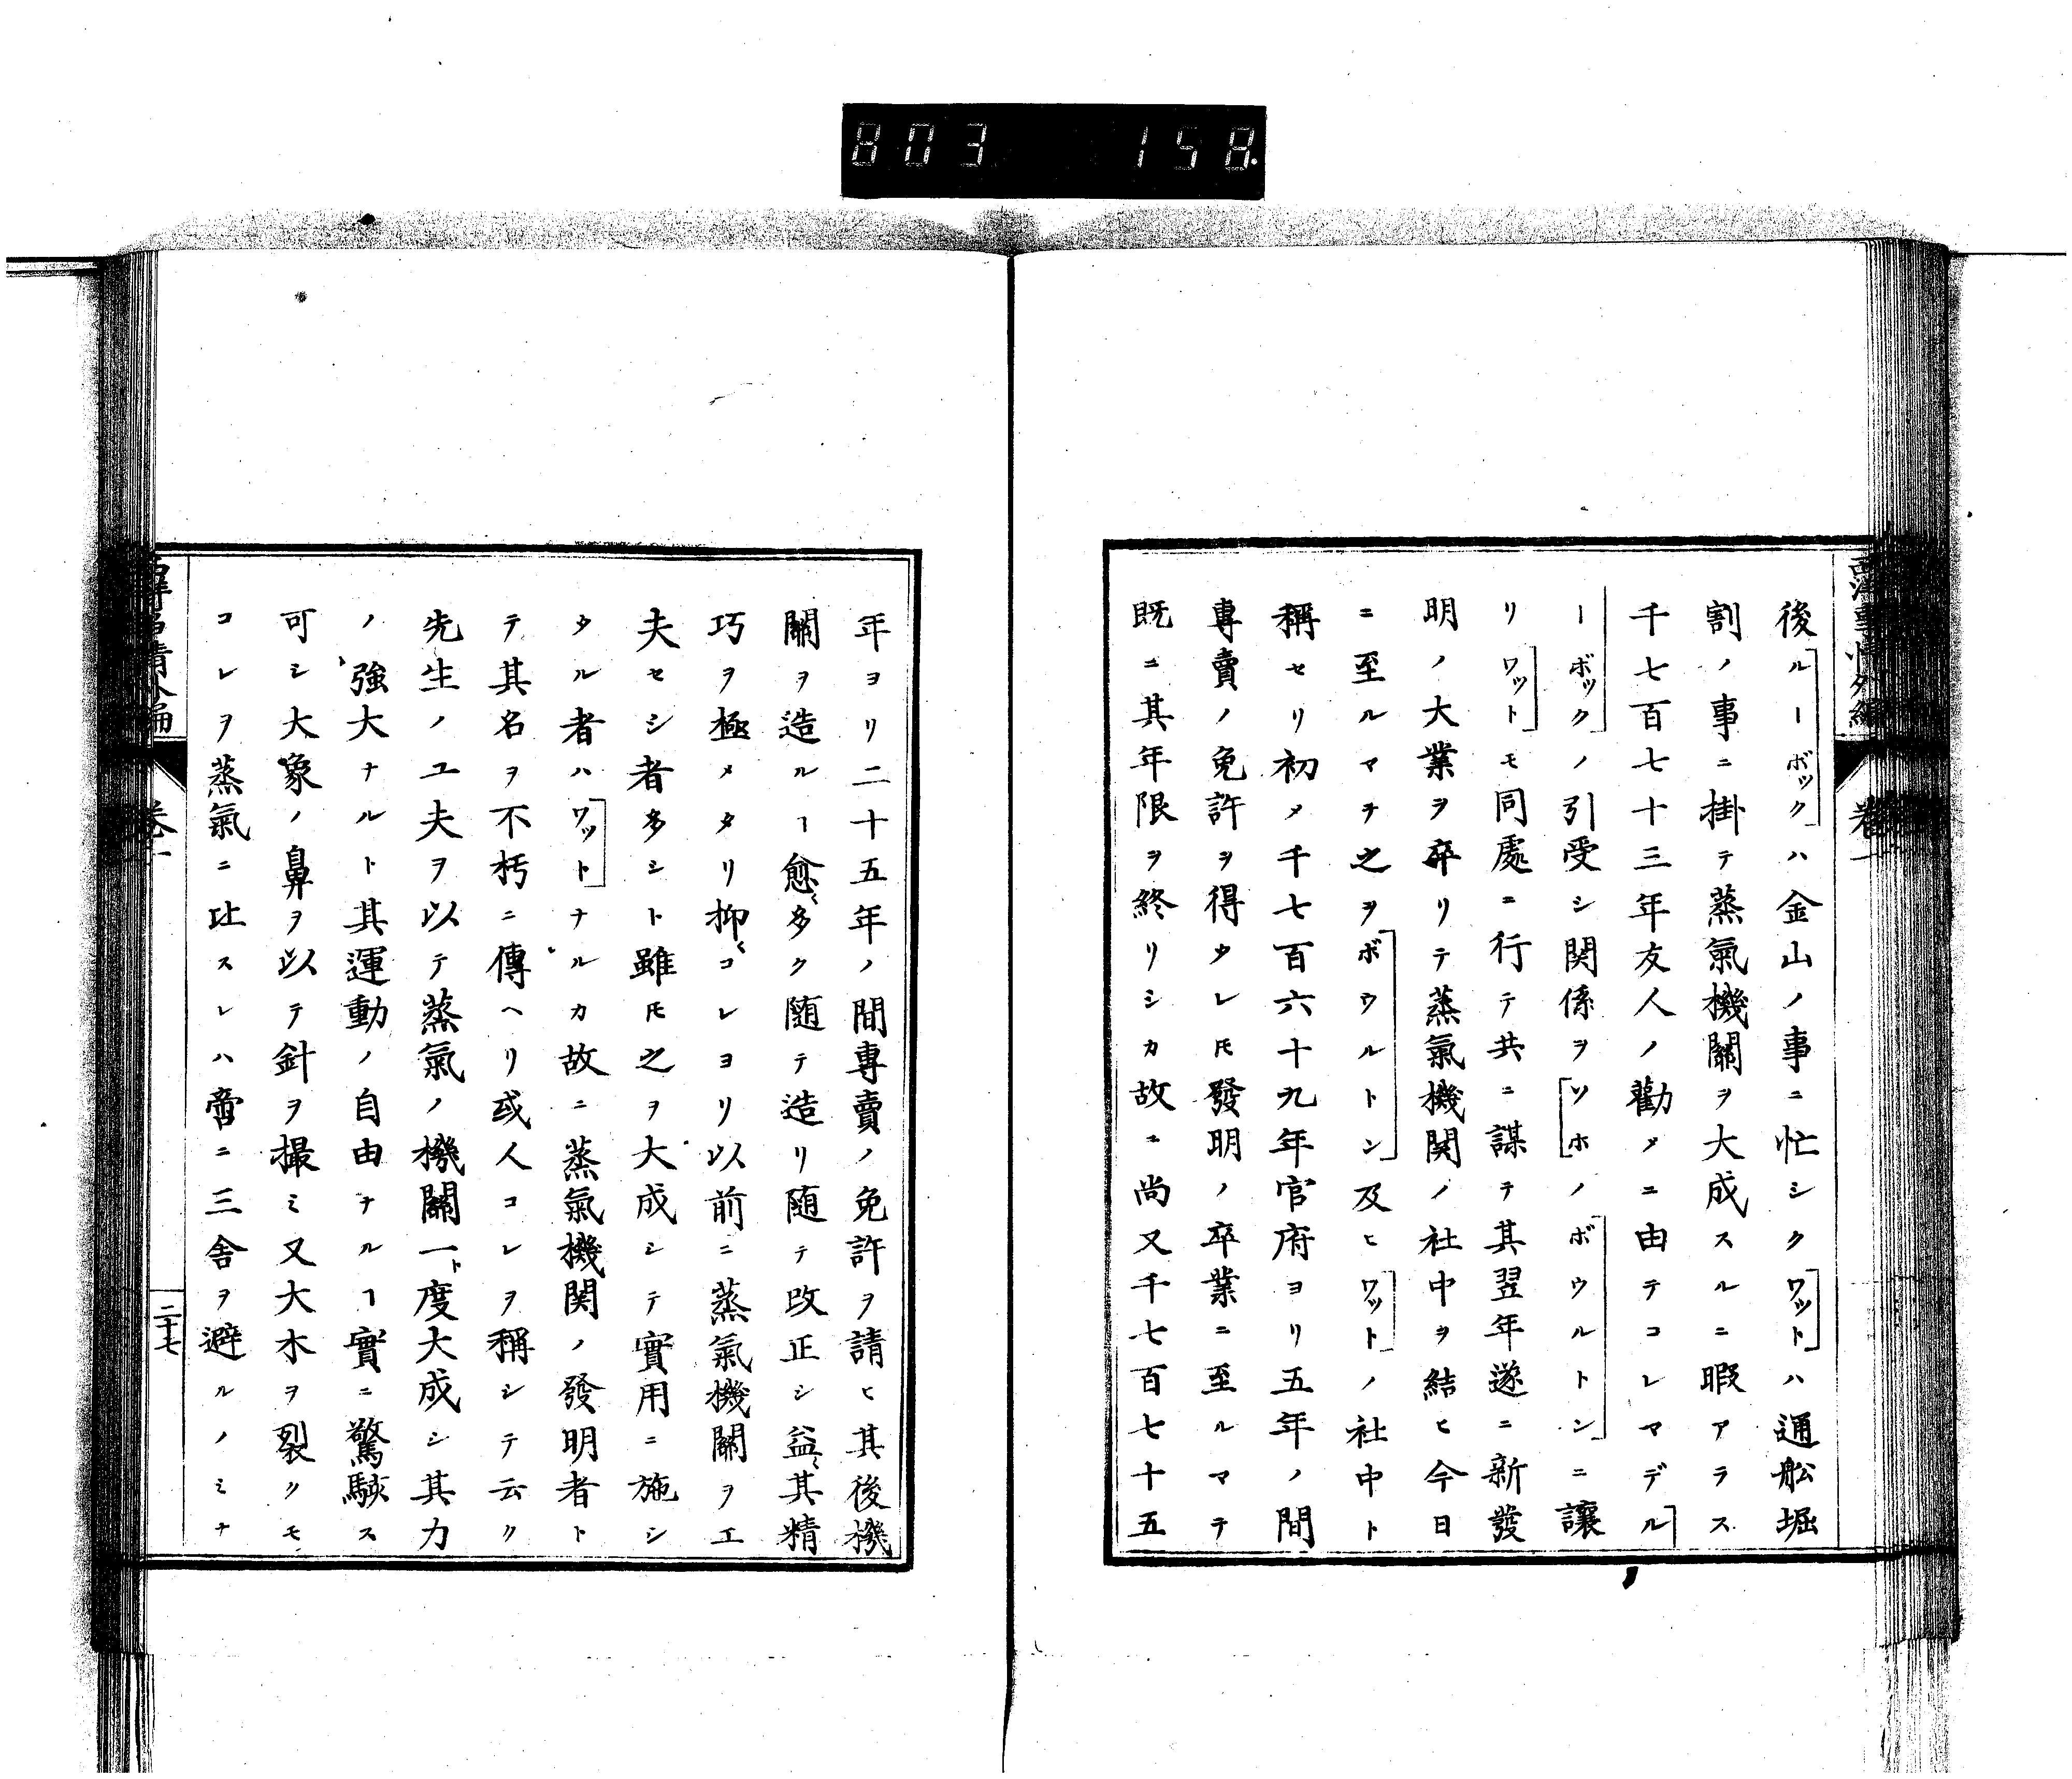 803 158
西洋事情外編
卷一
後ルーボックハ金山ノ事ニ忙シクワットハ通舩堀
割ノ事ニ掛テ蒸氣機關ヲ大成スルニ暇アラス
千七百七十三年友人ノ勸メニ由テコレマデル
ーボックノ引受シ関係ヲソホノボウルトンニ讓
リワットモ同處ニ行テ共ニ謀テ其翌年遂ニ新發
明ノ大業ヲ卒リテ蒸氣機関ノ社中ヲ結ヒ今日
ニ至ルマテ之ヲボウルトン及ヒワットノ社中ト
稱セリ初メ千七百六十九年官府ヨリ五年ノ間
專賣ノ免許ヲ得タレ𪜈發明ノ卒業ニ至ルマテ
既ニ其年限ヲ終リシカ故ニ尚又千七百七十五
年ヨリ二十五年ノ間專賣ノ免許ヲ請ヒ其後機
關ヲ造ルヿ愈〻多ク随テ造リ随テ改正シ益〻其精
巧ヲ極メタリ抑〻コレヨリ以前ニ蒸氣機關ヲエ
夫セシ者多シト雖𪜈之ヲ大成シテ實用ニ施シ
タル者ハワットナルカ故ニ蒸氣機関ノ發明者ト
テ其名ヲ不朽ニ傳ヘリ或人コレヲ稱シテ云ク
先生ノユ夫ヲ以テ蒸氣ノ機關一ト度大成シ其力
ノ強大ナルト其運動ノ自由ナルヿ實ニ驚駭ス
可シ大象ノ鼻ヲ以テ針ヲ撮ミ又大木ヲ裂クモ
コレヲ蒸氣ニ比スレハ啻ニ三舎ヲ避ルノミナ
西洋事情外編
卷一
二十七